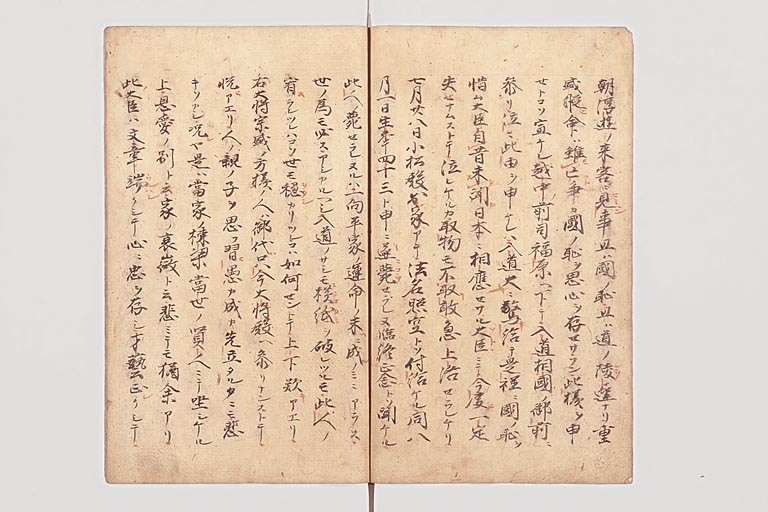 朝浮遊ノ来客ニ見事且ハ國ノ恥且ハ道ノ陵遅ナリ重
盛縦命ハ雖亡争カ國ノ恥ヲ思心ヲ存セサラン此様ヲ申
セトコソ宣ケレ越中前司福原ヘ下テ入道相國ノ御前ニ
参リ泣々此由ヲ申ケレハ入道大ニ驚給テ是程ニ國ノ恥ヲ
惜ム大臣自昔未聞日本ニ相應セサル大臣ニテ今度一定
失セナムストテ泣レケルカ取物モ不取敢急上洛セラレケリ
七月廿八日小松殿出家アテ法名照空トソ付給ケル同八
月一日生年四十三ト申ニ遂薨セラレヌ臨終正念トソ聞ケル
此人薨セラレヌルハ一向平家ノ運命ノ末ニ成ノミニアラス
世ノ為モ必スアシカルヘシ入道ノサシモ横紙ヲ破レツルモ此人ノ
宥ラレツレハコソ世モ穏カリツレコハ如何センストテ上下歎アエリ
右大将宗盛ノ方様ノ人ハ御代ハ只今大将殿ヘ参リナンストテ
悦アエリ人ノ親ノ子ヲ思フ習愚カ成カ先立タルタニモ悲
キソカシ況ヤ是ハ當家ノ棟梁當世ノ賢人ニテ坐シケル
上恩愛ノ別ト云家ノ衰微ト云悲ミテモ猶余アリ
此大臣ハ文章端クシテ心ニ忠ヲ存シ才藝正クシテ